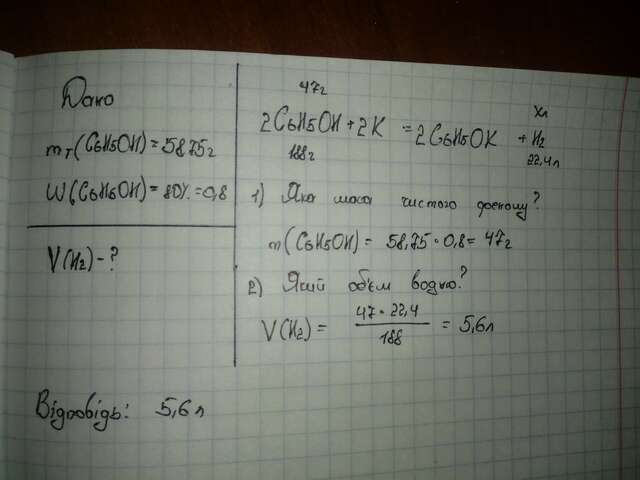 Дано
mт(C6H5OH)=58,75г
W(C6H5OH)=80%=0,8
V(H2)-?
47г
Xл
2C6H5OH+2K=2C6H5OK+H2
188г
22,4л
1) Яка маса чистого фенолу?
m(C6H5OH)=58,75·0,8=47г
2) Який об'єм водню?
V(H2)=47·22,4/188=5,6л
Відповідь: 5,6л